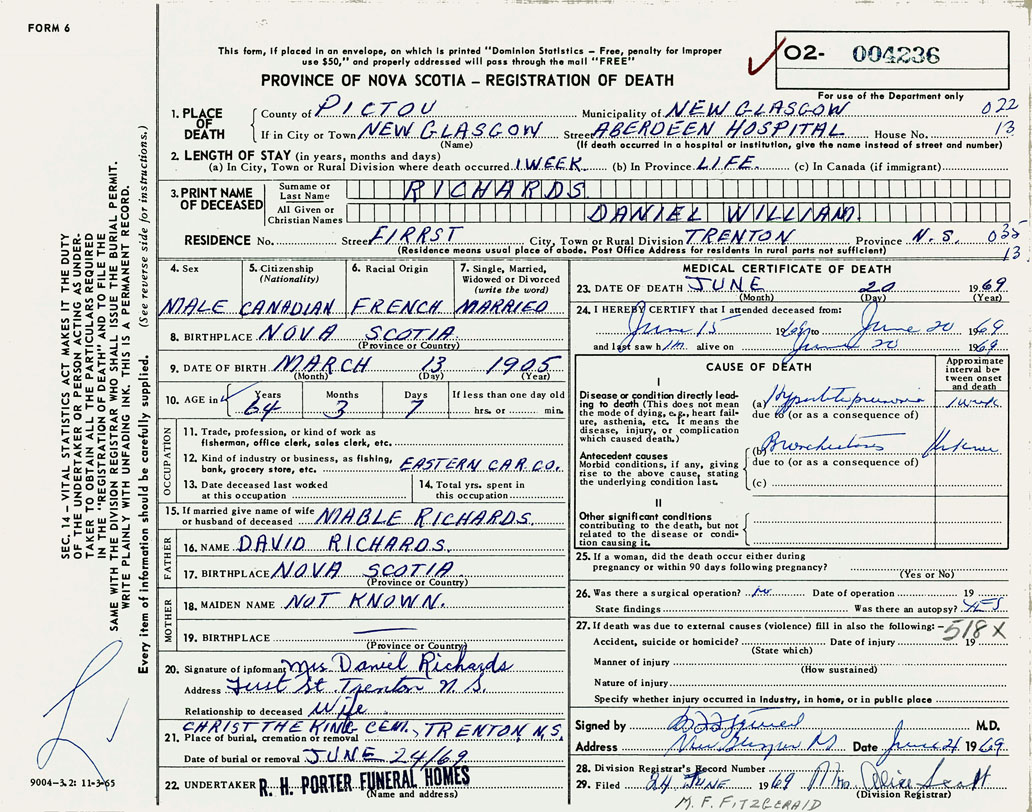 FORM 6
This form, if placed in an envelope, on which is printed "Dominion Statistics – Free, penalty for improper
use $50," and properly addressed will pass through the mail "FREE"
O2- 004236
PROVINCE OF NOVA SCOTIA – REGISTRATION OF DEATH
For use of the Department only
1. PLACE OF DEATH
County of PICTOU Municipality of NEW GLASGOW 022
If in City or Town NEW GLASGOW Street ABERDEEN HOSPITAL House No. 13
(Name) (If death occurred in a hospital or institution, give the name instead of street and number)
2. LENGTH OF STAY (in years, months and days)
(a) In City, Town or Rural Division where death occurred 1 WEEK (b) In Province LIFE. (c) In Canada (if immigrant)
3. PRINT NAME OF DECEASED
Surname or Last Name RICHARDS
All Given or Christian Names DANIEL WILLIAM.
RESIDENCE No. Street FIRRST City, Town or Rural Division TRENTON Province N.S. 035
(Residence means usual place of abode. Post Office Address for residents in rural parts not sufficient) 13
4. Sex
MALE
5. Citizenship
(Nationality)
CANADIAN
6. Racial Origin
FRENCH
7. Single, Married,
Widowed or Divorced
(write the word)
MARRIED
8. BIRTHPLACE NOVA SCOTIA
(Province or Country)
9. DATE OF BIRTH MARCH 13 1905
(Month) (Day) (Year)
10. AGE in Years Months Days If less than one day old
64 3 7 hrs. or min.
OCCUPATION
11. Trade, profession, or kind of work as
fisherman, office clerk, sales clerk, etc.
12. Kind of industry or business, as fishing,
bank, grocery store, etc. EASTERN CAR CO.
13. Date deceased last worked
at this occupation
14. Total yrs. spent in
this occupation
15. If married give name of wife
or husband of deceased MABLE RICHARDS.
FATHER
16. NAME DAVID RICHARDS.
17. BIRTHPLACE NOVA SCOTIA
(Province or Country)
MOTHER
18. MAIDEN NAME NOT KNOWN.
19. BIRTHPLACE
(Province or Country)
20. Signature of informant Mrs Daniel Richards
Address First St. Trenton N.S.
Relationship to deceased Wife
CHRIST THE KING CEM., TRENTON, N.S.
21. Place of burial, cremation or removal
Date of burial or removal JUNE 24/69
22. UNDERTAKER R. H. PORTER FUNERAL HOMES
(Name and address)
MEDICAL CERTIFICATE OF DEATH
23. DATE OF DEATH JUNE 20 1969
(Month) (Day) (Year)
24. I HEREBY CERTIFY that I attended deceased from:
June 15 1969 to June 20 1969
and last saw him alive on June 20 1969
CAUSE OF DEATH
Approximate
interval be-
tween onset
and death
I
Disease or condition directly lead-
ing to death (This does not mean
the mode of dying, e.g., heart fail-
ure, asthenia, etc. It means the
disease, injury, or complication
which caused death.)
(a) 1 week
due to (or as a consequence of)
Antecedent causes
Morbid conditions, if any, giving
rise to the above cause, stating
the underlying condition last.
(b)
due to (or as a consequence of)
(c)
II
Other significant conditions
contributing to the death, but not
related to the disease or condi-
tion causing it.
25. If a woman, did the death occur either during
pregnancy or within 90 days following pregnancy?
(Yes or No)
26. Was there a surgical operation? No Date of operation 19
State findings Was there an autopsy? YES
27. If death was due to external causes (violence) fill in also the following:-
518X
Accident, suicide or homicide? Date of injury 19
(State which)
Manner of injury
(How sustained)
Nature of injury
Specify whether injury occurred in industry, in home, or in public place
Signed by M.D.
Address New Glasgow Date June 21 1969
28. Division Registrar's Record Number
29. Filed 24 JUNE 1969 Mrs. Alice Scott
(Division Registrar)
M. F. FITZGERALD
SEC. 14 – VITAL STATISTICS ACT MAKES IT THE DUTY
OF THE UNDERTAKER OR PERSON ACTING AS UNDER-
TAKER TO OBTAIN ALL THE PARTICULARS REQUIRED
IN THE "REGISTRATION OF DEATH" AND TO FILE THE
SAME WITH THE DIVISION REGISTRAR WHO SHALL ISSUE THE BURIAL PERMIT.
WRITE PLAINLY WITH UNFADING INK. THIS IS A PERMANENT RECORD.
Every item of information should be carefully supplied. (See reverse side for instructions.)
9004-3.2: 11-3-65